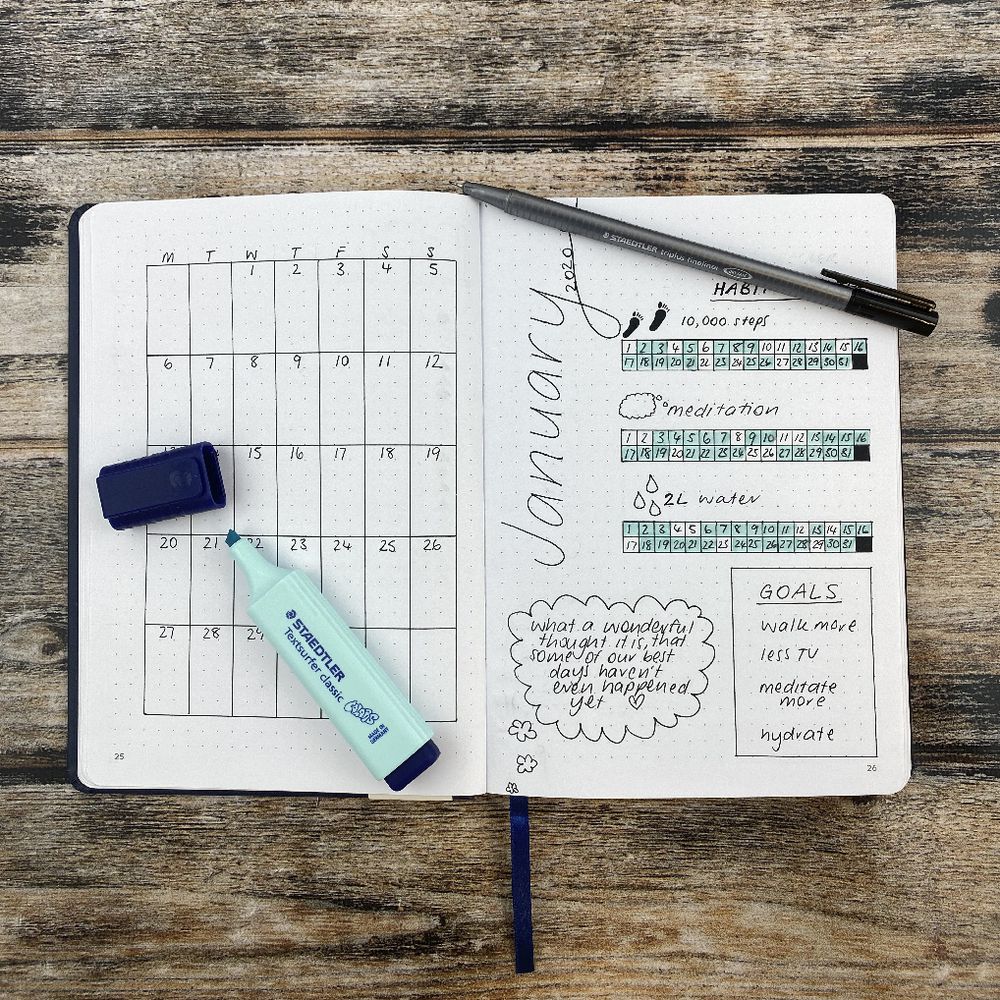 M T W T F S S
1 2 3 4 5
6 7 8 9 10 11 12
15 16 17 18 19
20 21 22 23 24 25 26
27 28 29
25
January
2020
STAEDTLER triplus fineliner
10,000 steps
1 2 3 4 5 6 7 8 9 10 11 12 13 14 15 16
17 18 19 20 21 22 23 24 25 26 27 28 29 30 31
meditation
1 2 3 4 5 6 7 8 9 10 11 12 13 14 15 16
17 18 19 20 21 22 23 24 25 26 27 28 29 30 31
2L water
1 2 3 4 5 6 7 8 9 10 11 12 13 14 15 16
17 18 19 20 21 22 23 24 25 26 27 28 29 30 31
what a wonderful
thought it is, that
some of our best
days haven't
even happened
yet
GOALS
walk more
less TV
meditate
more
hydrate
26
STAEDTLER
Textsurfer classic
MADE IN
GERMANY